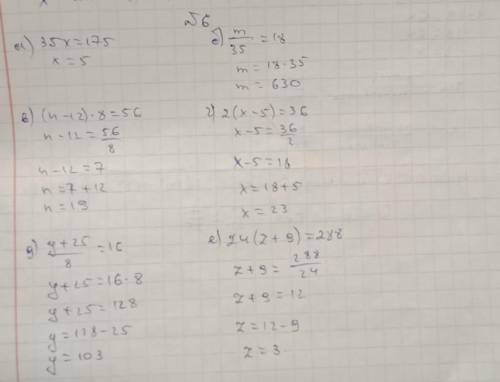 №6
а) 35x=175
x=5
б) m/35=18
m=18·35
m=630
в) (n-12)·8=56
n-12=56/8
n-12=7
n=7+12
n=19
г) 2(x-5)=36
x-5=36/2
x-5=18
x=18+5
x=23
д) y+25/8=16
y+25=16·8
y+25=128
y=128-25
y=103
е) 24(z+9)=288
z+9=288/24
z+9=12
z=12-9
z=3